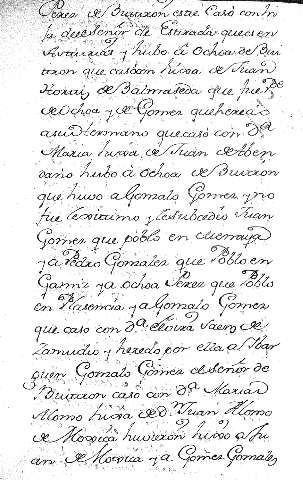 Perez de Buitron este Casó con hi
ja de el Señor de Estrada que es en
Asturias y hubo â Ochoa de Bui
tron que casó con hixa de Juan
de Balmaseda que fue
de Ochoa y de Gomez que heredó
a su Hermano que casó con Dª
Maria hixa de Juan de Aben
daño hubo â Ochoa de Buitron
que huvo a Gonzalo Gomez y no
fue lexitimo y le subcedio Juan
Gomez que poblo en
y a Pedro Gonzalez que Poblo en
y a Ochoa Perez que Poblo
en Plasencia y a Gonzalo Gomez
que caso con Dª elvira Saez de
Zamudio y heredo por ella a Ibar
guen Gonzalo Gomez el Señor de
Buitron casó con Dª Maria
Alonso hixa de Dⁿ Juan Alonso
de Moxica huvieron hixos a Ju
an de Moxica y a Gomez Gonzalez